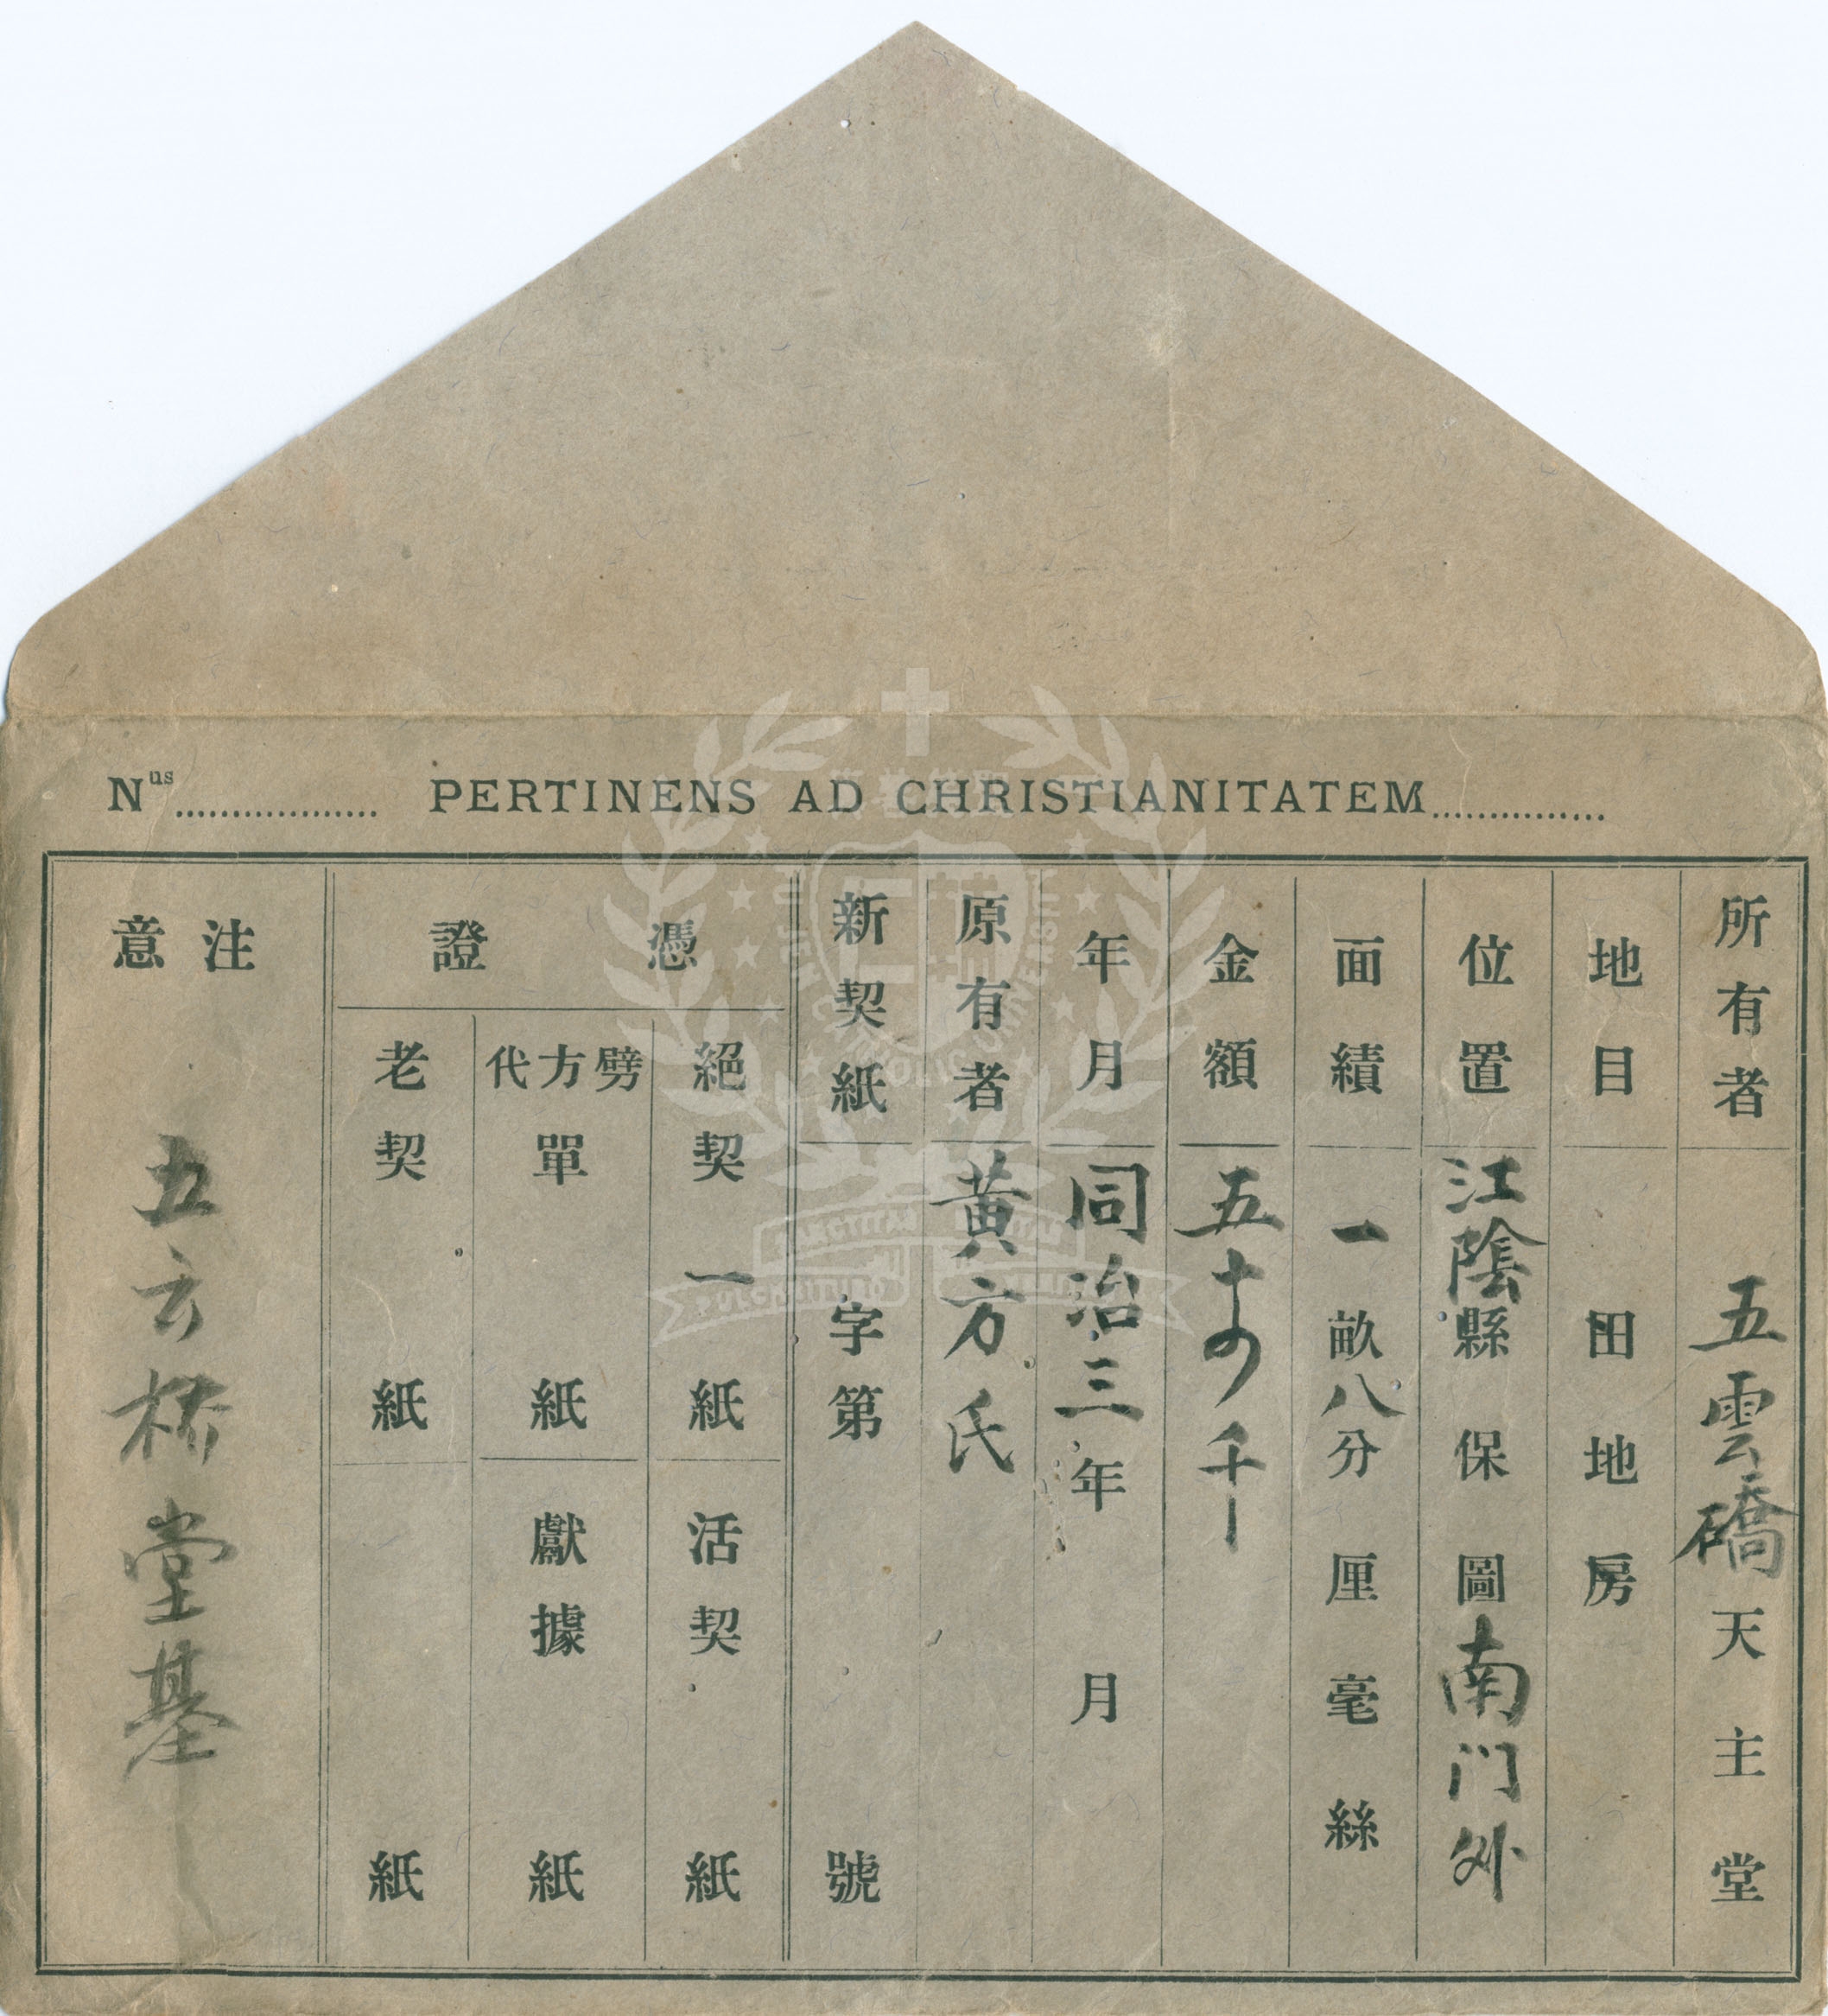 Nus.................. PERTINENS AD CHRISTIANITATEM...............
所有者 五雲礄天主堂
地目 田地房
位置 江陰縣保圖南门外
面績 一畝八分厘毫絲
金額 五十 千
年月 同治三年月
原有者 黄方氏
新契紙 字第號
憑證
絕契 一紙
活契 紙
劈方代單 紙
獻據 紙
老契 紙
紙
注意
五云桥堂基